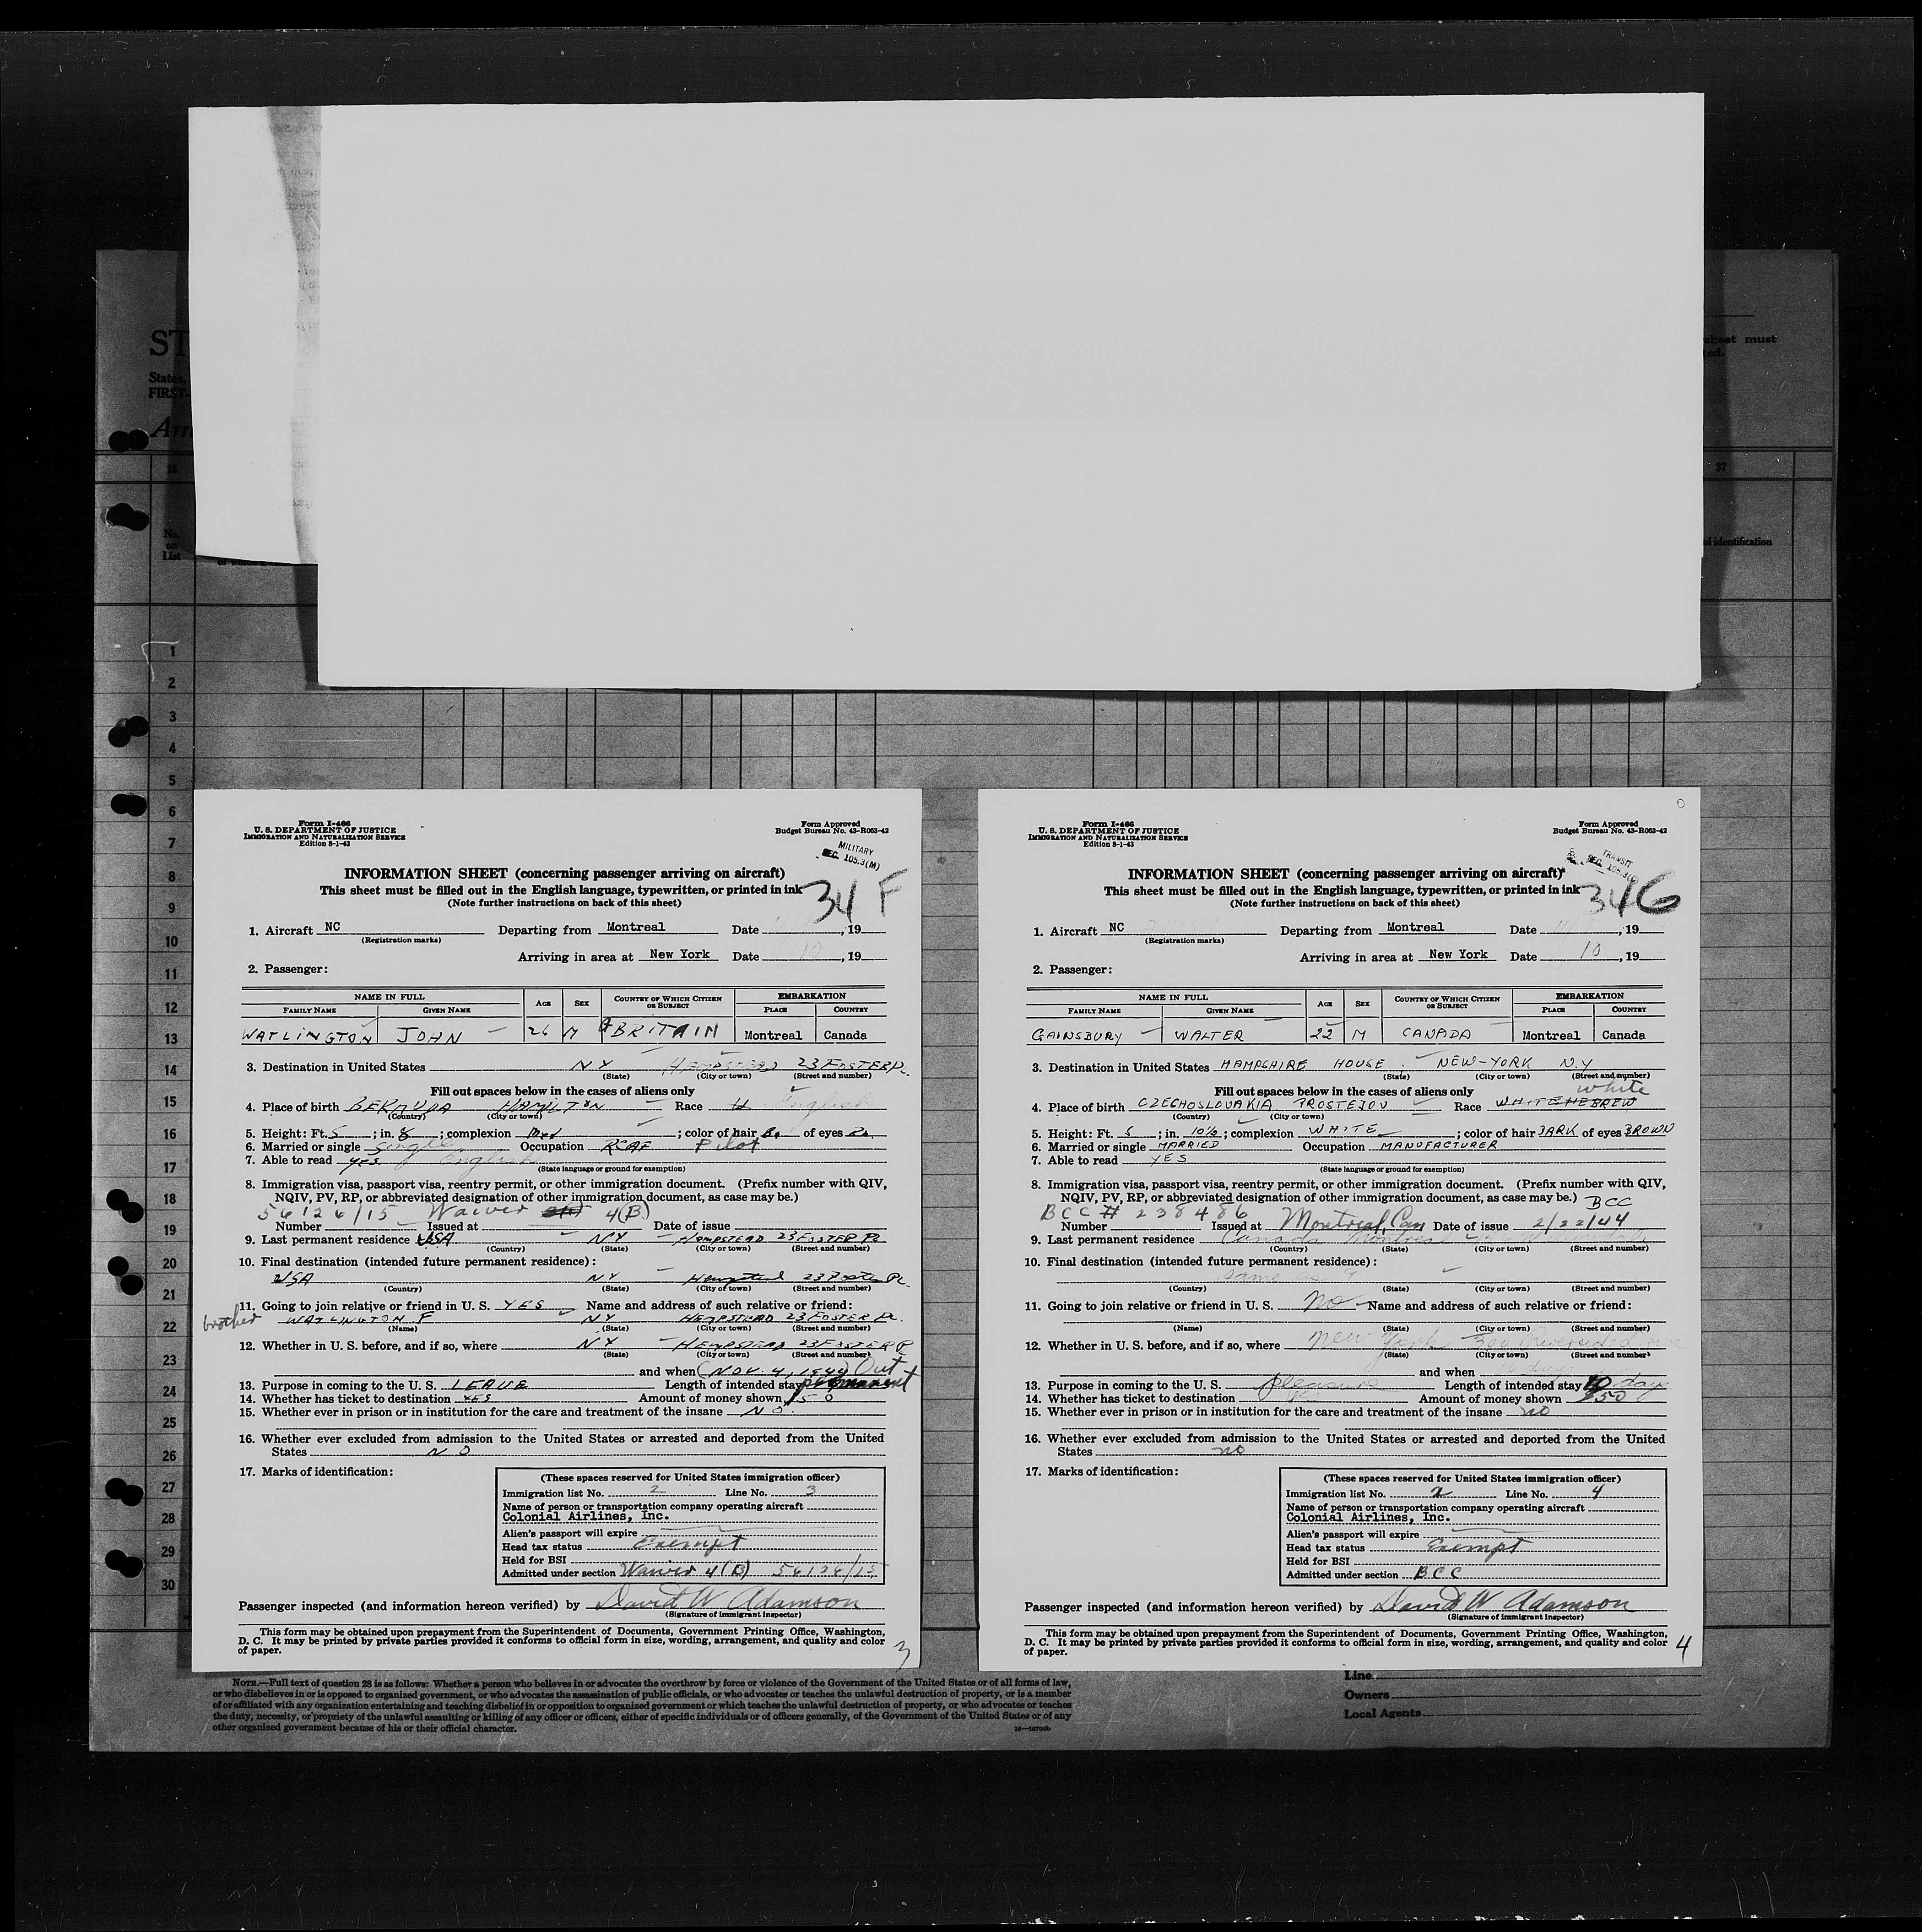 ST
States,
FIRST-
Arr
sheet must
ed.
16
27
No.
on
List
of identification
1
2
3
4
5
6
7
8
9
10
11
12
13
14
15
16
17
18
19
20
21
22
23
24
25
26
27
28
29
30
Form I-466
U. S. DEPARTMENT OF JUSTICE
IMMIGRATION AND NATURALIZATION SERVICE
Edition 8-1-43
Form Approved
Budget Bureau No. 43-R063-42
MILITARY
SEC. 105.3(M)
INFORMATION SHEET (concerning passenger arriving on aircraft)
This sheet must be filled out in the English language, typewritten, or printed in ink
(Note further instructions on back of this sheet)
34 F
1. Aircraft NC Departing from Montreal Date , 19
(Registration marks)
Arriving in area at New York Date 10 , 19
2. Passenger:
NAME IN FULL AGE SEX COUNTRY OF WHICH CITIZEN OR SUBJECT EMBARKATION
FAMILY NAME GIVEN NAME PLACE COUNTRY
WATLINGTON JOHN 26 M BRITAIN Montreal Canada
3. Destination in United States NY HEMPSTEAD 23 FOSTER PL.
(State) (City or town) (Street and number)
Fill out spaces below in the cases of aliens only
4. Place of birth BERMUDA HAMILTON Race W English
(Country) (City or town)
5. Height: Ft. 5 ; in. 8 ; complexion Med ; color of hair B. of eyes
6. Married or single Single Occupation RCAF Pilot
7. Able to read yes English
(State language or ground for exemption)
8. Immigration visa, passport visa, reentry permit, or other immigration document. (Prefix number with QIV,
NQIV, PV, RP, or abbreviated designation of other immigration document, as case may be.)
56126/15 Waiver 4(B)
Number Issued at Date of issue
9. Last permanent residence USA NY HEMPSTEAD 23 FOSTER PL
(Country) (State) (City or town) (Street and number)
10. Final destination (intended future permanent residence):
USA NY Hempstead 23 Foster PL.
(Country) (State) (City or town) (Street and number)
11. Going to join relative or friend in U. S. YES Name and address of such relative or friend:
brother WATLINGTON F NY HEMPSTEAD 23 FOSTER PL.
(Name) (State) (City or town) (Street and number)
12. Whether in U. S. before, and if so, where NY HEMPSTEAD 23 FOSTER P
(State) (City or town) (Street and number)
and when (NOV. 4, 1944) Out
13. Purpose in coming to the U. S. LEAVE Length of intended stay permanent
14. Whether has ticket to destination YES Amount of money shown 50
15. Whether ever in prison or in institution for the care and treatment of the insane NO
16. Whether ever excluded from admission to the United States or arrested and deported from the United
States NO
17. Marks of identification:
(These spaces reserved for United States immigration officer)
Immigration list No. 2 Line No. 3
Name of person or transportation company operating aircraft
Colonial Airlines, Inc.
Alien's passport will expire
Head tax status Exempt
Held for BSI
Admitted under section Waiver 4(B) 56126/15
Passenger inspected (and information hereon verified) by David W Adamson
(Signature of immigrant inspector)
This form may be obtained upon prepayment from the Superintendent of Documents, Government Printing Office, Washington,
D. C. It may be printed by private parties provided it conforms to official form in size, wording, arrangement, and quality and color
of paper.
3
Form I-466
U. S. DEPARTMENT OF JUSTICE
IMMIGRATION AND NATURALIZATION SERVICE
Edition 8-1-43
Form Approved
Budget Bureau No. 43-R063-42
TRANSIT
SEC. 105.3(
INFORMATION SHEET (concerning passenger arriving on aircraft)
This sheet must be filled out in the English language, typewritten, or printed in ink
(Note further instructions on back of this sheet)
34G
1. Aircraft NC Departing from Montreal Date , 19
(Registration marks)
Arriving in area at New York Date 10 , 19
2. Passenger:
NAME IN FULL AGE SEX COUNTRY OF WHICH CITIZEN OR SUBJECT EMBARKATION
FAMILY NAME GIVEN NAME PLACE COUNTRY
GAINSBURY WALTER 22 M CANADA Montreal Canada
3. Destination in United States HAMPSHIRE HOUSE NEW-YORK N.Y
(State) (City or town) (Street and number)
Fill out spaces below in the cases of aliens only
white
4. Place of birth CZECHOSLOVAKIA PROSTEJOV Race WHITE HEBREW
(Country) (City or town)
5. Height: Ft. 5 ; in. 10½ ; complexion WHITE ; color of hair DARK of eyes BROWN
6. Married or single MARRIED Occupation MANUFACTURER
7. Able to read YES
(State language or ground for exemption)
8. Immigration visa, passport visa, reentry permit, or other immigration document. (Prefix number with QIV,
NQIV, PV, RP, or abbreviated designation of other immigration document, as case may be.) BCC
BCC # 238486
Number Issued at Montreal, Can Date of issue 2/22/44
9. Last permanent residence Canada Montreal
(Country) (State) (City or town) (Street and number)
10. Final destination (intended future permanent residence):
same as 9
(Country) (State) (City or town) (Street and number)
11. Going to join relative or friend in U. S. No Name and address of such relative or friend:
(Name) (State) (City or town) (Street and number)
12. Whether in U. S. before, and if so, where New York
(State) (City or town) (Street and number)
and when
13. Purpose in coming to the U. S. pleasure Length of intended stay 10 days
14. Whether has ticket to destination Amount of money shown 250
15. Whether ever in prison or in institution for the care and treatment of the insane no
16. Whether ever excluded from admission to the United States or arrested and deported from the United
States no
17. Marks of identification:
(These spaces reserved for United States immigration officer)
Immigration list No. 2 Line No. 4
Name of person or transportation company operating aircraft
Colonial Airlines, Inc.
Alien's passport will expire
Head tax status Exempt
Held for BSI
Admitted under section BCC
Passenger inspected (and information hereon verified) by David W Adamson
(Signature of immigrant inspector)
This form may be obtained upon prepayment from the Superintendent of Documents, Government Printing Office, Washington,
D. C. It may be printed by private parties provided it conforms to official form in size, wording, arrangement, and quality and color
of paper.
4
NOTE.—Full text of question 28 is as follows: Whether a person who believes in or advocates the overthrow by force or violence of the Government of the United States or of all forms of law,
or who disbelieves in or is opposed to organized government, or who advocates the assassination of public officials, or who advocates or teaches the unlawful destruction of property, or is a member
of or affiliated with any organization entertaining and teaching disbelief in or opposition to organized government or which teaches the unlawful destruction of property, or who advocates or teaches
the duty, necessity, or propriety of the unlawful assaulting or killing of any officer or officers, either of specific individuals or of officers generally, of the Government of the United States or of any
other organized government because of his or their official character.
Line
Owners
Local Agents